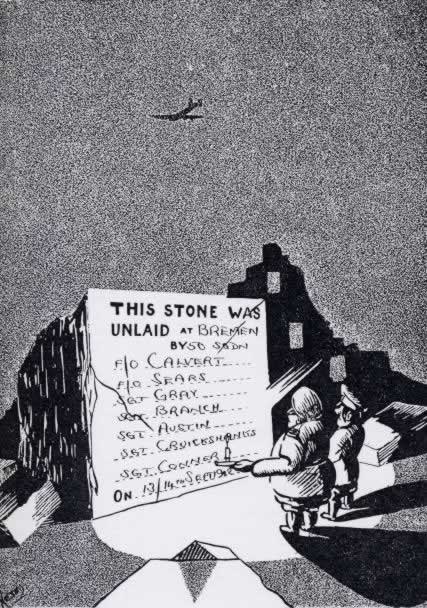 THIS STONE WAS
UNLAID AT BREMEN
BY 50 SQDN
F/O CALVERT
F/O SEARS
SGT GRAY
SGT BRANCH
SGT AUSTIN
SGT CRUICKSHANKS
SGT CONNER
ON 13/14TH SEPT